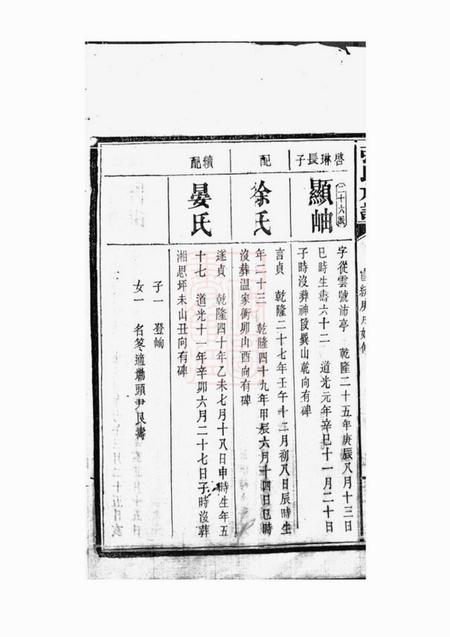 啓琳長子
顯岫
字從雲號沛亭　乾隆二十五年庚辰八月十三日
巳時生壽六十二　道光元年辛巳十一月二十日
子時沒葬神段巽山乾向有碑
配
徐氏
言貞　乾隆二十七年壬午十二月初八日辰時生
年二十三　乾隆四十九年甲辰六月十四日巳時
沒葬溫家衝卯山酉向有碑
續配
晏氏
遂貞　乾隆四十年乙未七月十八日申時生年五
十七　道光十一年辛卯六月二十七日子時沒葬
湘思坪未山丑向有碑
子一　登峋
女一　名冬適鵝頭尹良壽